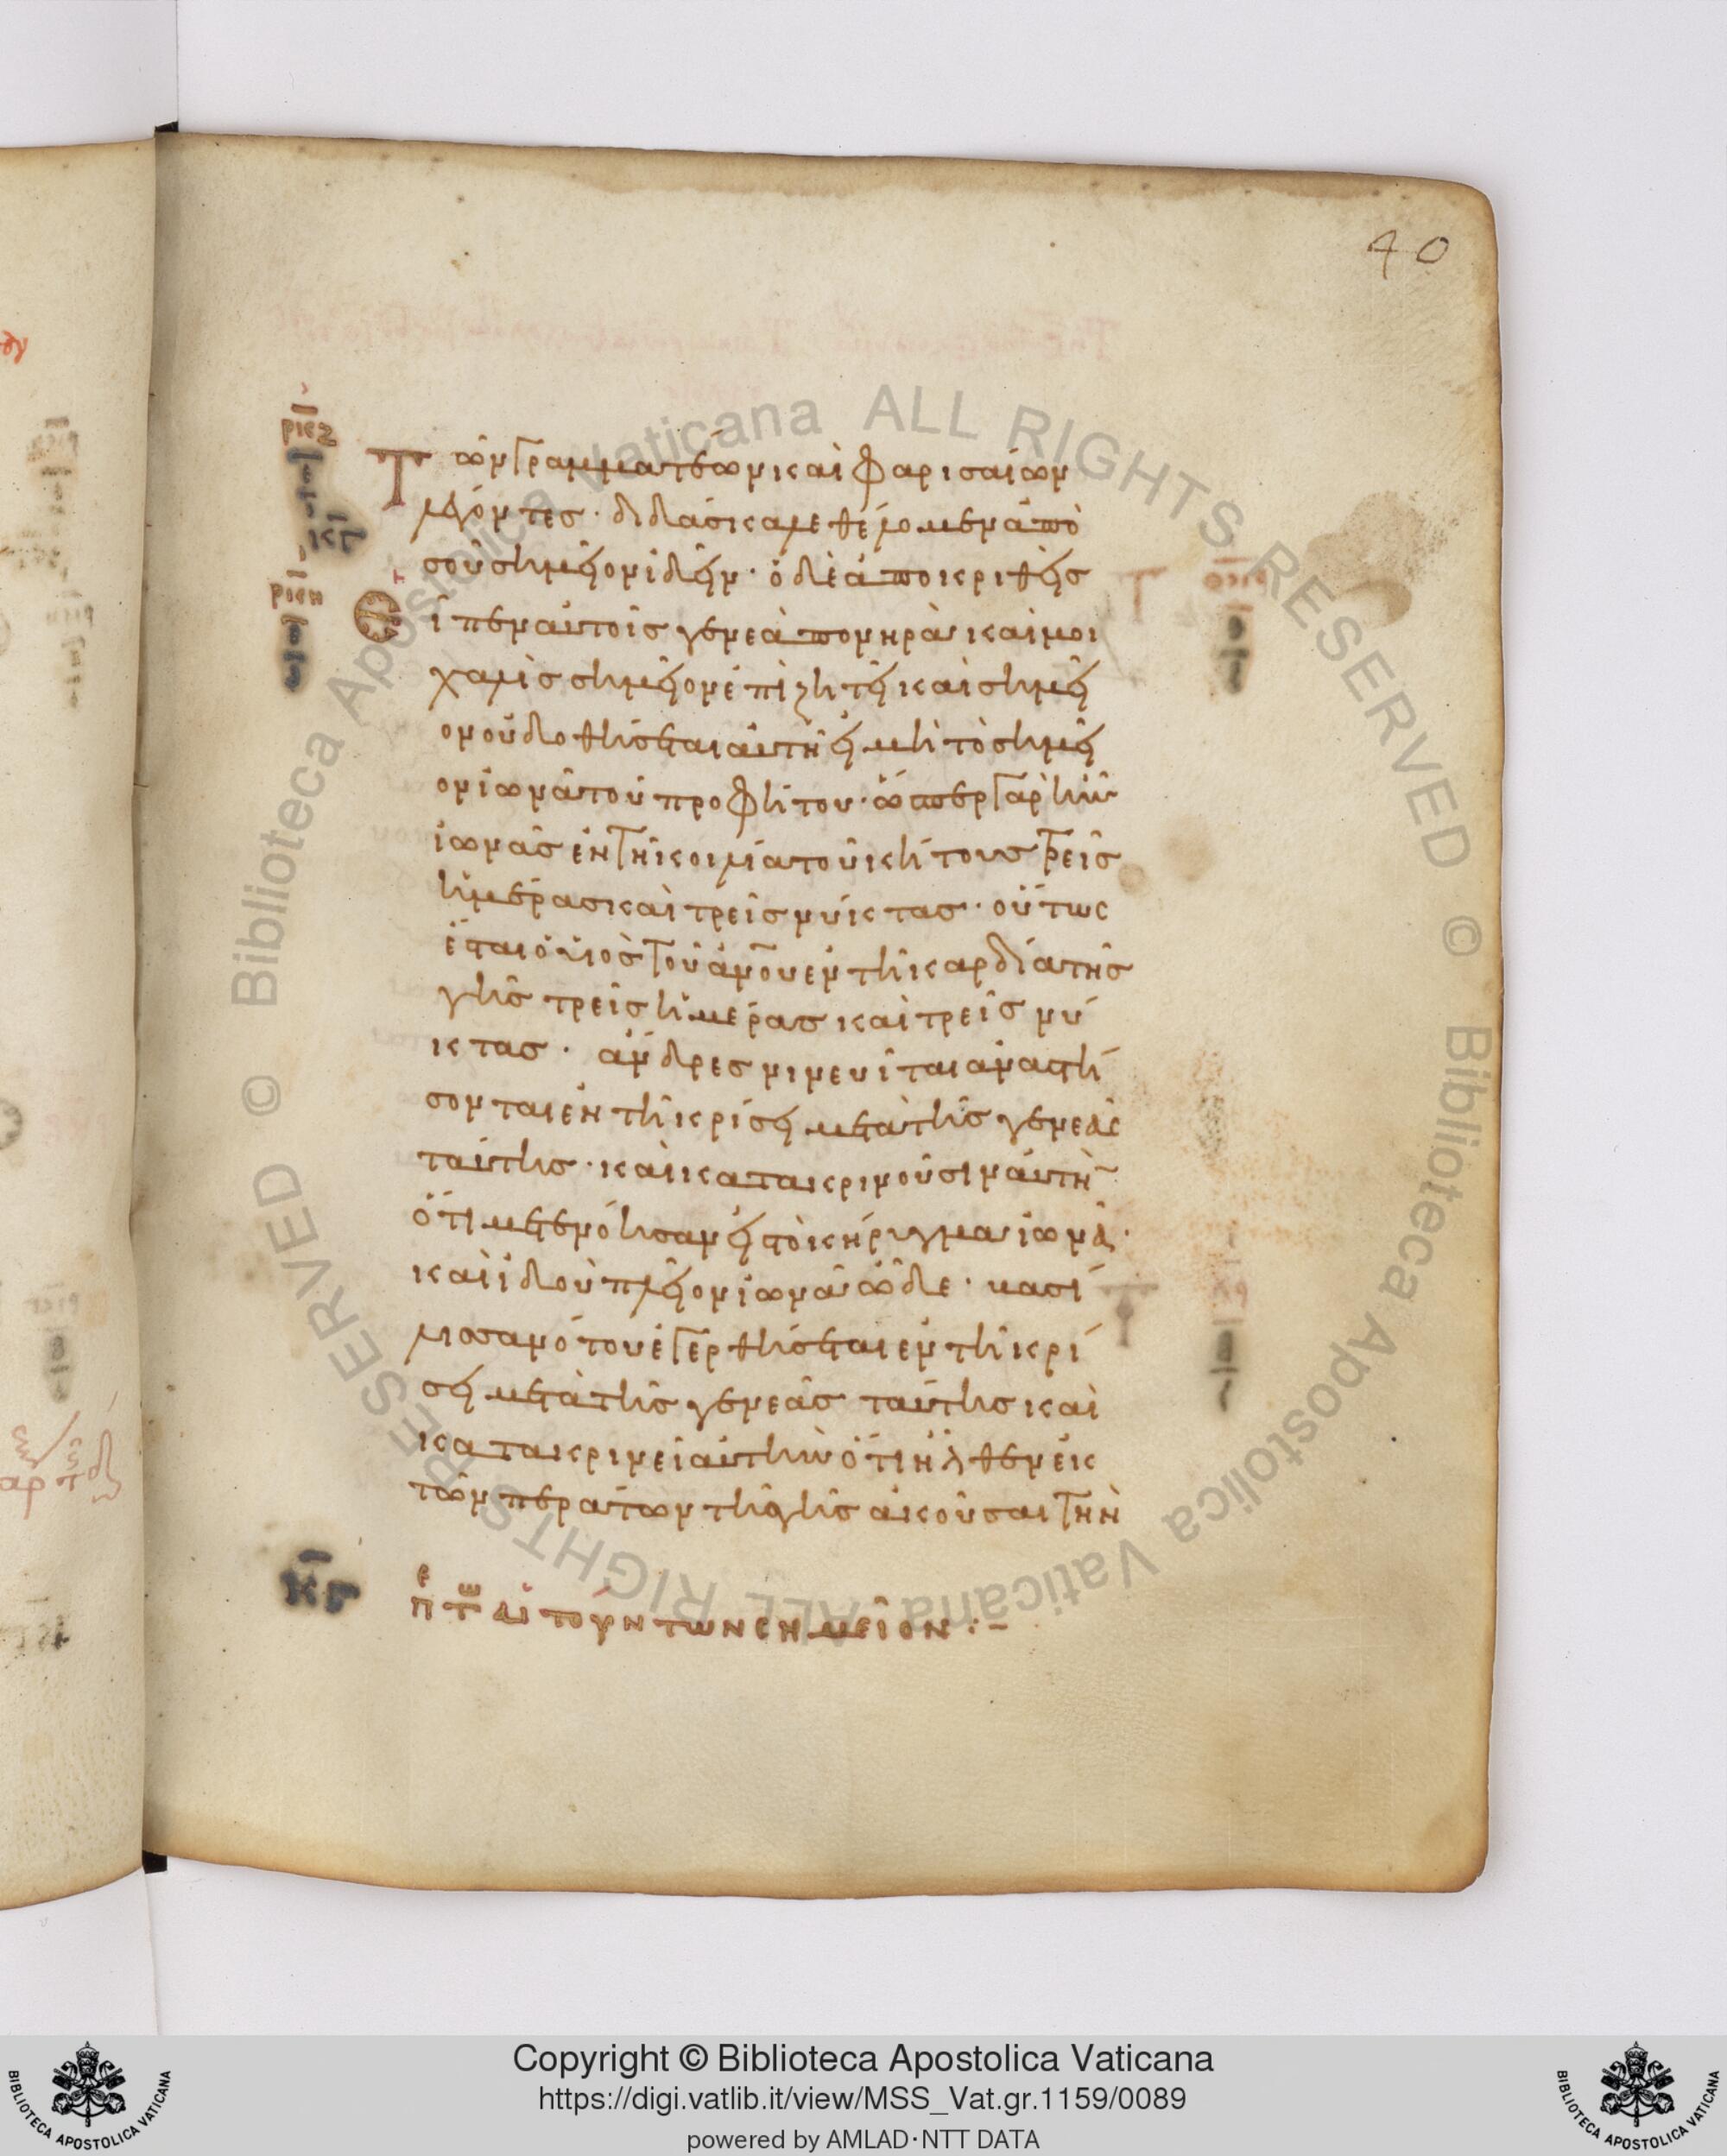 40
ρκζ
Τῶν γραμματέων καὶ Φαρισαίων
λέγοντες · διδάσκαλε θέλομεν ἀπὸ
κγ
σοῦ σημεῖον ἰδεῖν · ὁ δὲ ἀποκριθεὶς
ρκη
εἶπεν αὐτοῖς γενεὰ πονηρὰ καὶ μοι
χαλὶς σημεῖον ἐπιζητεῖ καὶ σημεῖ
ον οὐ δοθήσεται αὐτῇ εἰ μὴ τὸ σημεῖ
ον ἰωνᾶ τοῦ προφήτου · ὥσπερ γὰρ ἦν
ἰωνᾶς ἐν τῇ κοιλία τοῦ κήτους τρεῖς
ἡμέρας καὶ τρεῖς νύκτας · οὕτως
ἔσται ὁ υἱὸς τοῦ ἀνου ἐν τῇ καρδία τῆς
γῆς τρεῖς ἡμέρας καὶ τρεῖς νύ
κτας · ἄνδρες νινευῖται ἀναστή
σονται ἐν τῇ κρίσει μετὰ τῆς γενεᾶς
ταύτης · καὶ κατακρινοῦσιν αὐτὴν
ὅτι μετενόησαν εἰς τὸ κήρυγμα ἰωνᾶ ·
καὶ ἰδοὺ πλεῖον ἰωνᾶ ὧδε · βασί
λισσα νότου ἐγερθήσεται ἐν τῇ κρί
σει μετὰ τῆς γενεᾶς ταύτης καὶ
κατακρινεῖ αὐτὴν ὅτι ἦλθεν ἐκ
τῶν περάτων τῆς γῆς ἀκοῦσαι τὴν
κγ πε τω αἰτούντων σημεῖον :-
Copyright © Biblioteca Apostolica Vaticana
https://digi.vatlib.it/view/MSS_Vat.gr.1159/0089
powered by AMLAD·NTT DATA
BIBLIOTECA APOSTOLICA VATICANA
BIBLIOTECA APOSTOLICA VATICANA
© Biblioteca Apostolica Vaticana ALL RIGHTS RESERVED
© Biblioteca Apostolica Vaticana ALL RIGHTS RESERVED